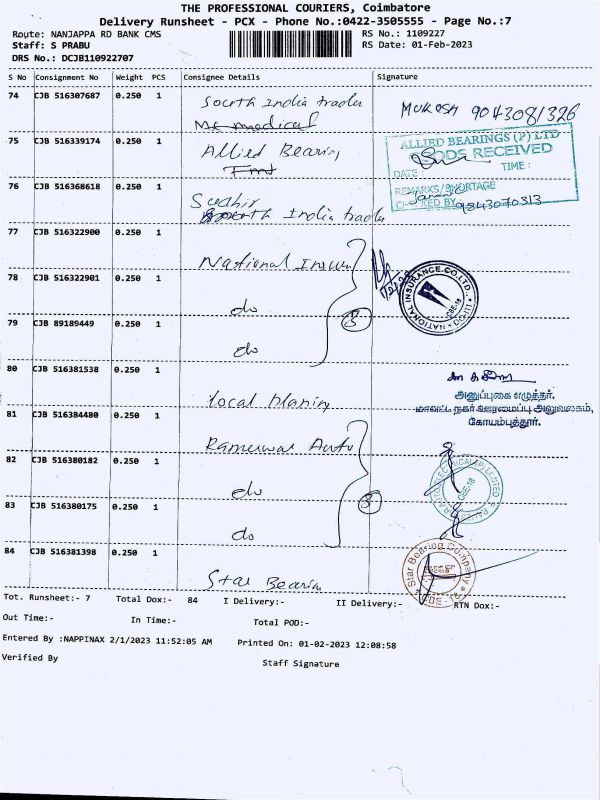 THE PROFESSIONAL COURIERS, Coimbatore
Delivery Runsheet - PCX - Phone No.:0422-3505555 - Page No.:7
Route: NANJAPPA RD BANK CMS
RS No.: 1109227
Staff: S PRABU
RS Date: 01-Feb-2023
DRS No.: DCJB110922707
S No Consignment No Weight PCS Consignee Details Signature
74 CJB 516307687 0.250 1 South India trader MUKESH 9043081326
Mc medical
75 CJB 516339174 0.250 1 Allied Bearing
ALLIED BEARINGS (P) LTD
GOODS RECEIVED
DATE: TIME:
REMARKS/SHORTAGE
CHECKED BY 9843070813
76 CJB 516368618 0.250 1 Sudhir
South India trader
77 CJB 516322900 0.250 1 National Insu
78 CJB 516322901 0.250 1 do
NATIONAL INSURANCE.CO.LTD.
CBE-18
79 CJB 89189449 0.250 1 do
3
80 CJB 516381538 0.250 1 local planing
அனுப்புகை எழுத்தர்.
மாவட்ட நகர் ஊரமைப்பு அலுவலகம்,
கோயம்புத்தூர்.
81 CJB 516384480 0.250 1 Rameswar Auto
82 CJB 516380182 0.250 1 do
CBE-18
83 CJB 516380175 0.250 1 do
3
84 CJB 516381398 0.250 1 Star Bearing
Star Bearing Company
Tot. Runsheet:- 7 Total Dox:- 84 I Delivery:- II Delivery:- RTN Dox:-
Out Time:- In Time:- Total POD:-
Entered By :NAPPINAX 2/1/2023 11:52:05 AM Printed On: 01-02-2023 12:08:58
Verified By Staff Signature